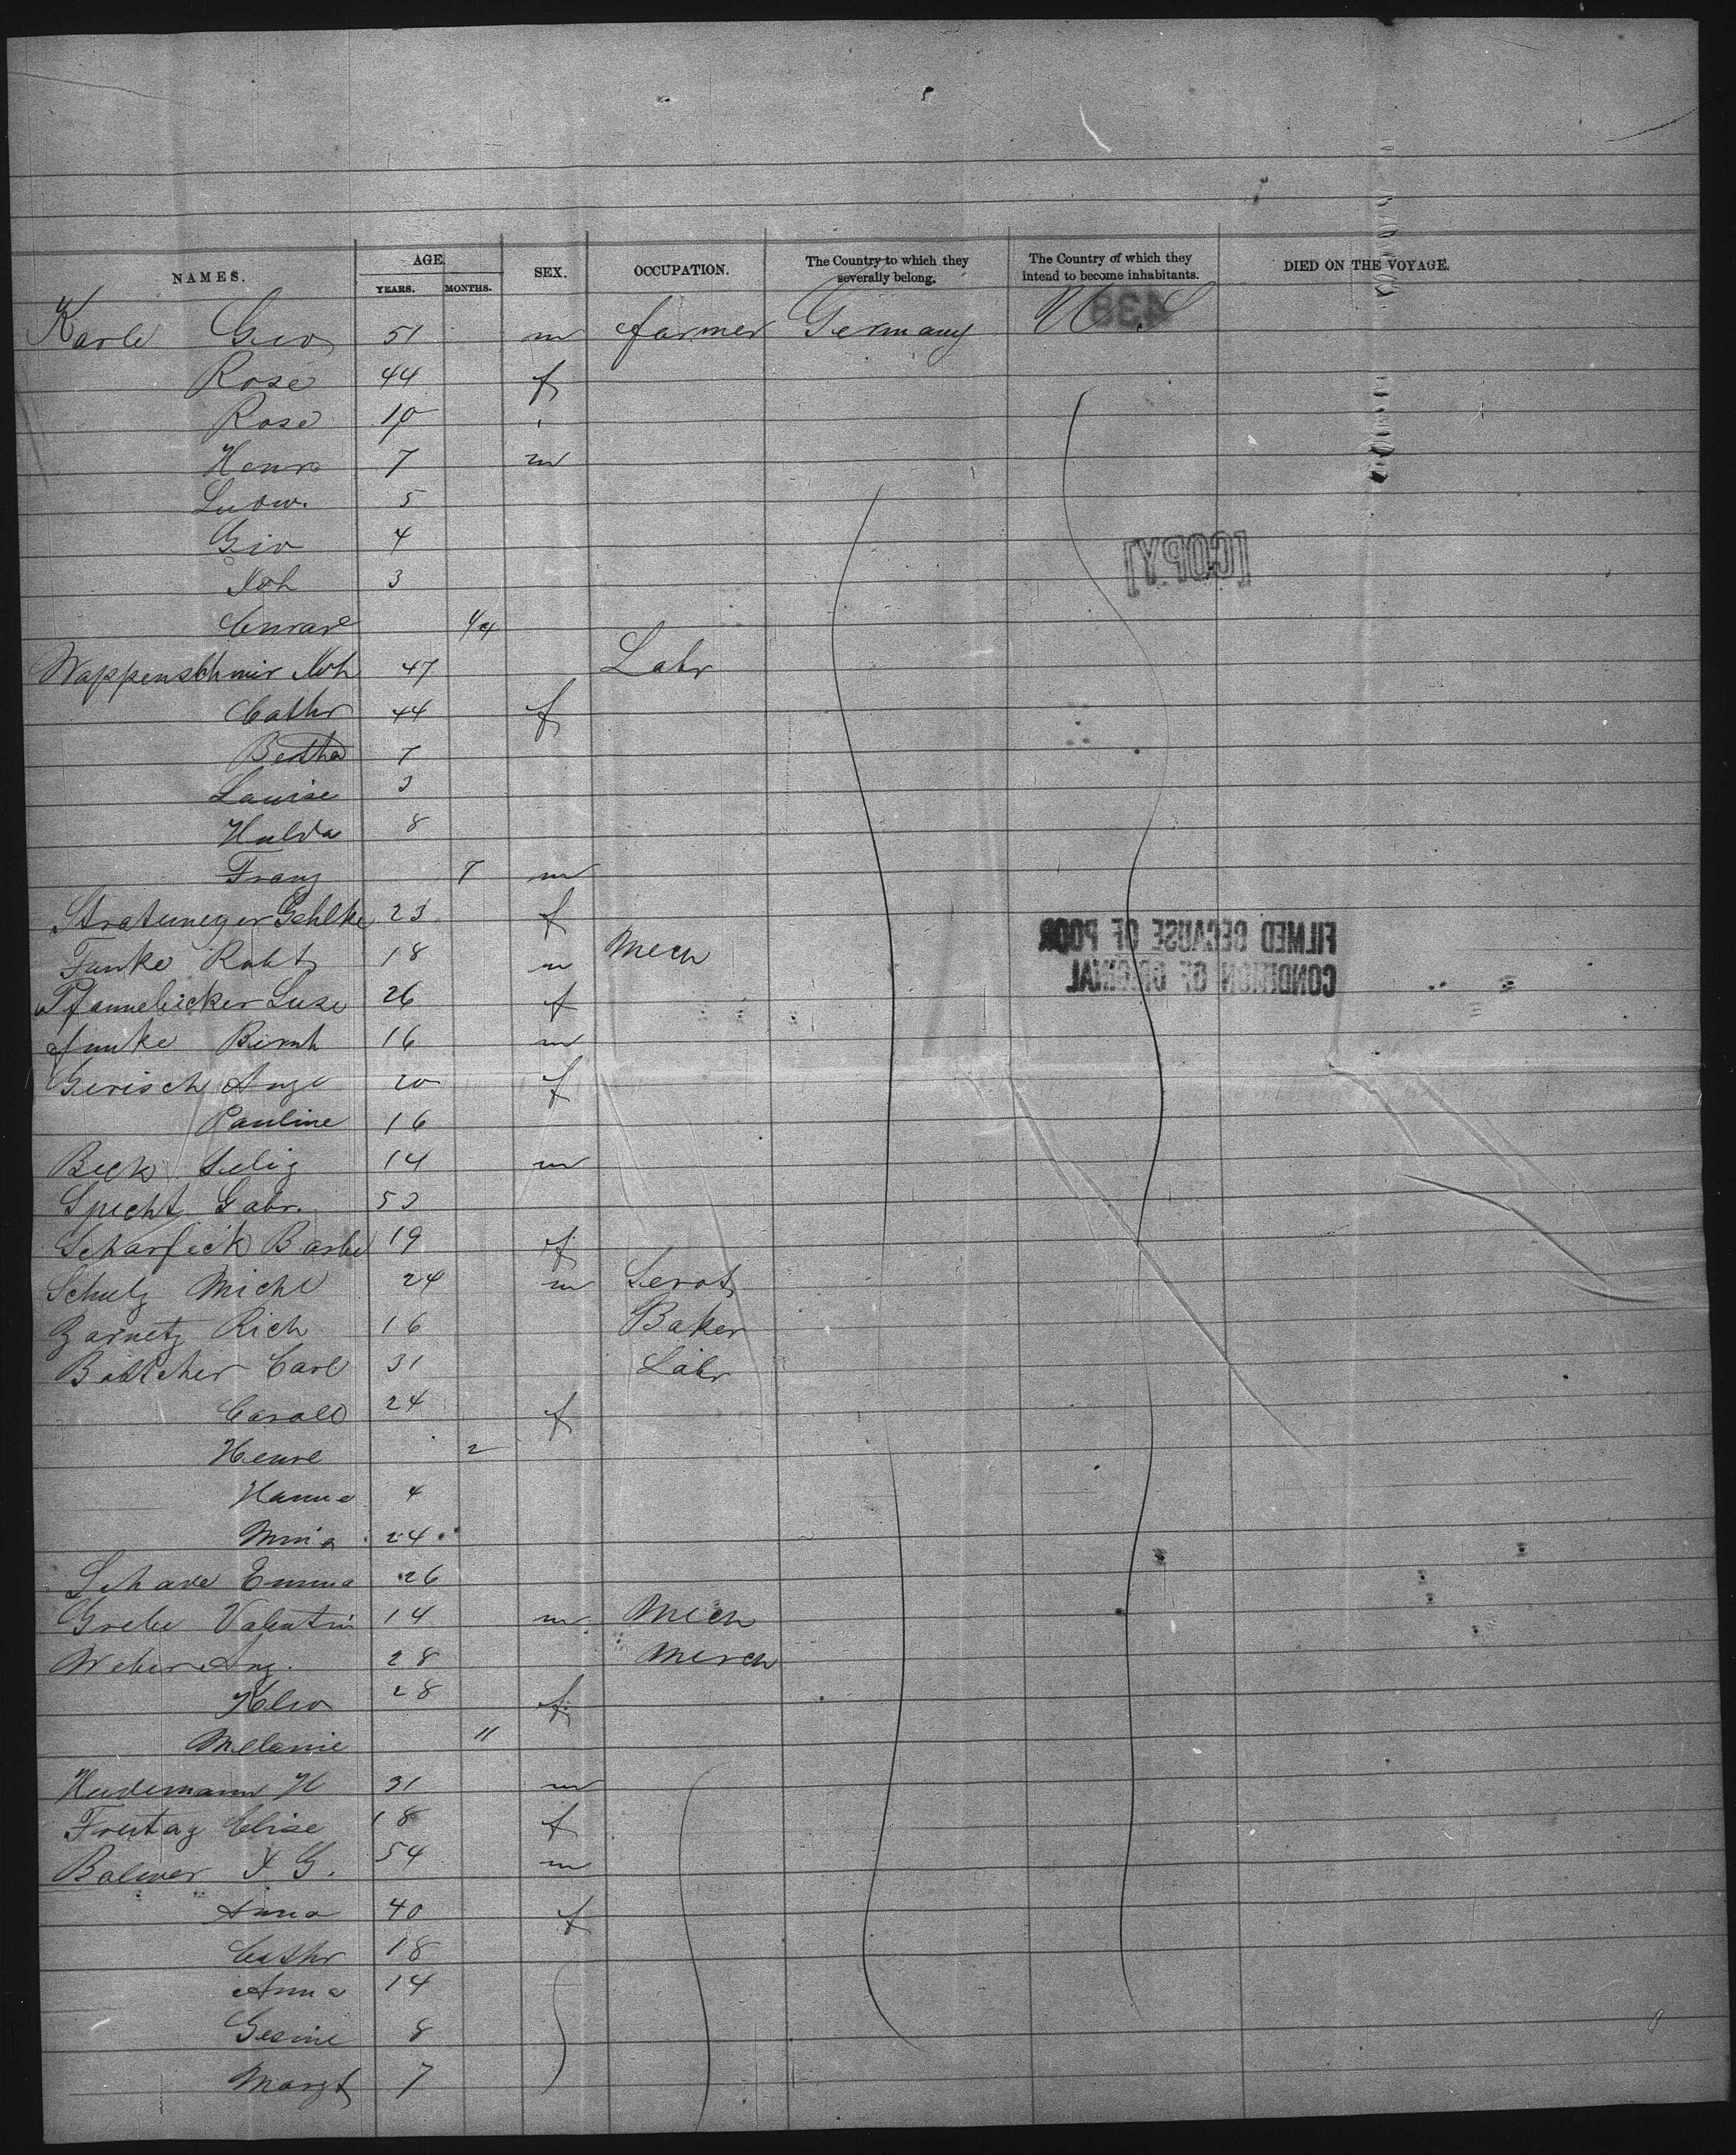 NAMES. AGE. YEARS. MONTHS. SEX. OCCUPATION. The Country to which they severally belong. The Country of which they intend to become inhabitants. DIED ON THE VOYAGE.
438
Karle Geo 51 m farmer Germany U S
Rose 44 f
Rose 10
Henr 7 m
Ludw. 5
Geo 4
[COPY]
Joh 3
Conrad 1/4
Wappenschmid Joh 47 Labr
Cathr 44 f
Bertha 7
Louise 3
Hulda 8
Franz 7 m
23 f
FILMED BECAUSE OF POOR
Funke Robt 18 m Mech
CONDITION OF ORIGINAL
Pfannebecker Luse 26 f
Funke Bernh 16 m
Gerisch Auge 20 f
Pauline 16
Beck Selig 14 m
Specht Gabr. 53
Scharfeck Barbe 19 f
Schulz Michl 24 m Servt
Zarnetz Rich 16 Baker
Bottcher Carl 31 Labr
Carole 24 f
Henre 2
Hanna 4
Mina 24
Schade Emma 26
Grebe Valentin 14 m Mech
Weber Aug. 28 Merch
28 f
Melanie 11
Heidemann H 31 m
Freitag Elise 18 f
Balmer J G. 54 m
Anna 40 f
Cathr 18
Anna 14
Gesine 8
Margt 7